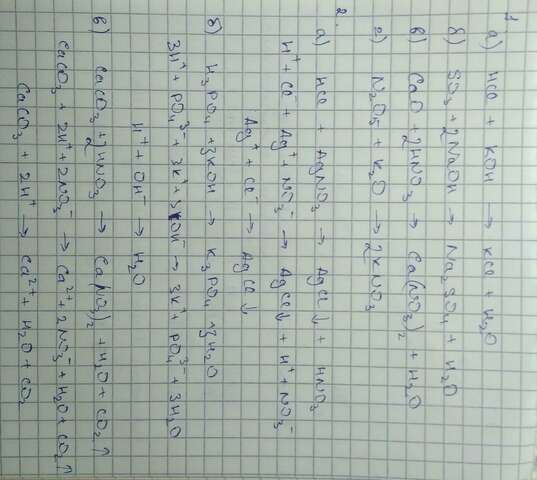 1.
а) HCl + KOH → KCl + H₂O
б) SO₃ + 2NaOH → Na₂SO₄ + H₂O
в) CaO + 2HNO₃ → Ca(NO₃)₂ + H₂O
г) N₂O₅ + K₂O → 2KNO₃
2.
а) HCl + AgNO₃ → AgCl↓ + HNO₃
H⁺ + Cl⁻ + Ag⁺ + NO₃⁻ → AgCl↓ + H⁺ + NO₃⁻
Ag⁺ + Cl⁻ → AgCl↓
б) H₃PO₄ + 3KOH → K₃PO₄ + 3H₂O
3H⁺ + PO₄³⁻ + 3K⁺ + 3OH⁻ → 3K⁺ + PO₄³⁻ + 3H₂O
H⁺ + OH⁻ → H₂O
в) CaCO₃ + 2HNO₃ → Ca(NO₃)₂ + H₂O + CO₂↑
CaCO₃ + 2H⁺ + 2NO₃⁻ → Ca²⁺ + 2NO₃⁻ + H₂O + CO₂↑
CaCO₃ + 2H⁺ → Ca²⁺ + H₂O + CO₂